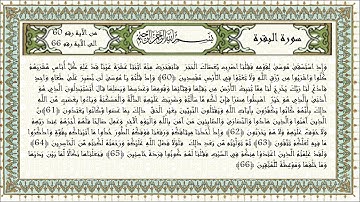 سورة البقرة
بسم الله الرحمن الرحيم
من الآية رقم 60
الى الآية رقم 66
وَإِذِ اسْتَسْقَى مُوسَى لِقَوْمِهِ فَقُلْنَا اضْرِبْ بِعَصَاكَ الْحَجَرَ فَانْفَجَرَتْ مِنْهُ اثْنَتَا عَشْرَةَ عَيْنًا قَدْ عَلِمَ كُلُّ أُنَاسٍ مَشْرَبَهُمْ
كُلُوا وَاشْرَبُوا مِنْ رِزْقِ اللَّهِ وَلَا تَعْثَوْا فِي الْأَرْضِ مُفْسِدِينَ (60) وَإِذْ قُلْتُمْ يَا مُوسَى لَنْ نَصْبِرَ عَلَى طَعَامٍ وَاحِدٍ
فَادْعُ لَنَا رَبَّكَ يُخْرِجْ لَنَا مِمَّا تُنْبِتُ الْأَرْضُ مِنْ بَقْلِهَا وَقِثَّائِهَا وَفُومِهَا وَعَدَسِهَا وَبَصَلِهَا قَالَ أَتَسْتَبْدِلُونَ الَّذِي هُوَ
أَدْنَى بِالَّذِي هُوَ خَيْرٌ اهْبِطُوا مِصْرًا فَإِنَّ لَكُمْ مَا سَأَلْتُمْ وَضُرِبَتْ عَلَيْهِمُ الذِّلَّةُ وَالْمَسْكَنَةُ وَبَاءُوا بِغَضَبٍ مِنَ اللَّهِ
ذَلِكَ بِأَنَّهُمْ كَانُوا يَكْفُرُونَ بِآيَاتِ اللَّهِ وَيَقْتُلُونَ النَّبِيِّينَ بِغَيْرِ الْحَقِّ ذَلِكَ بِمَا عَصَوْا وَكَانُوا يَعْتَدُونَ (61) إِنَّ
الَّذِينَ آمَنُوا وَالَّذِينَ هَادُوا وَالنَّصَارَى وَالصَّابِئِينَ مَنْ آمَنَ بِاللَّهِ وَالْيَوْمِ الْآخِرِ وَعَمِلَ صَالِحًا فَلَهُمْ أَجْرُهُمْ عِنْدَ رَبِّهِمْ
وَلَا خَوْفٌ عَلَيْهِمْ وَلَا هُمْ يَحْزَنُونَ (62) وَإِذْ أَخَذْنَا مِيثَاقَكُمْ وَرَفَعْنَا فَوْقَكُمُ الطُّورَ خُذُوا مَا آتَيْنَاكُمْ بِقُوَّةٍ وَاذْكُرُوا
مَا فِيهِ لَعَلَّكُمْ تَتَّقُونَ (63) ثُمَّ تَوَلَّيْتُمْ مِنْ بَعْدِ ذَلِكَ فَلَوْلَا فَضْلُ اللَّهِ عَلَيْكُمْ وَرَحْمَتُهُ لَكُنْتُمْ مِنَ الْخَاسِرِينَ (64)
وَلَقَدْ عَلِمْتُمُ الَّذِينَ اعْتَدَوْا مِنْكُمْ فِي السَّبْتِ فَقُلْنَا لَهُمْ كُونُوا قِرَدَةً خَاسِئِينَ (65) فَجَعَلْنَاهَا نَكَالًا لِمَا بَيْنَ يَدَيْهَا
وَمَا خَلْفَهَا وَمَوْعِظَةً لِلْمُتَّقِينَ (66)